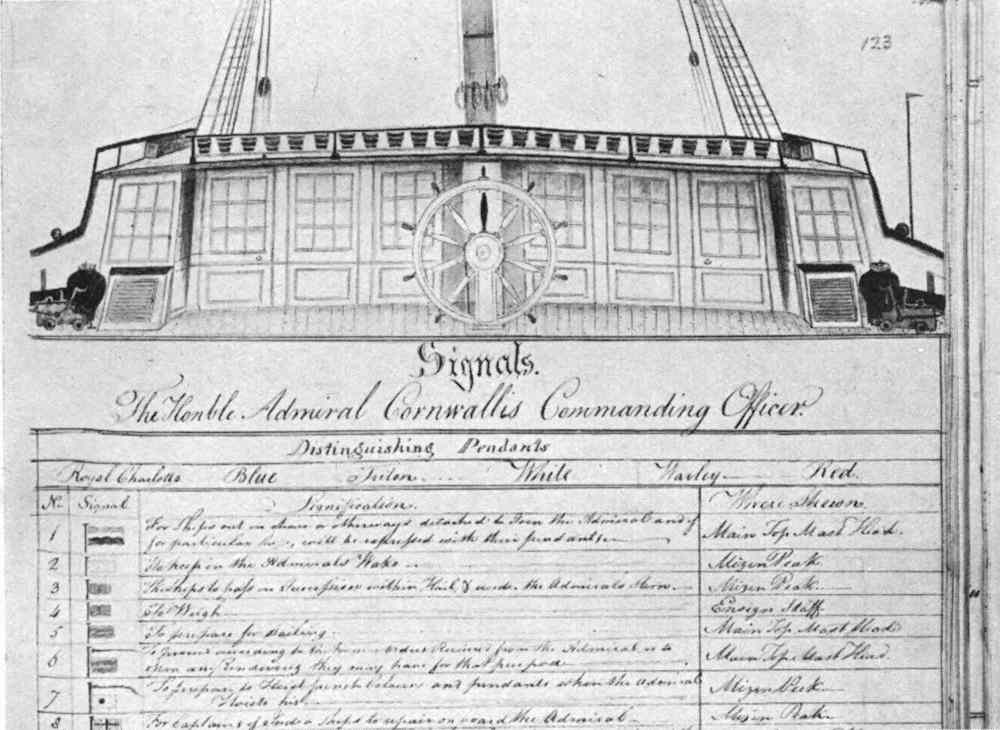 123
Signals.
The Honble Admiral Cornwallis Commanding Officer.
Distinguishing Pendants
Royal Charlotte Blue Triton White Warley Red.
No. Signal Signification. Where Shewn.
1 For Ships out on chace or otherways detached to Join the Admiral and if
for particular Ships, will be expressed with their pendants Main Top Mast Head.
2 To keep in the Admirals Wake Mizen Peak
3 The ships to pass in Succession within Hail & under the Admirals Stern. Mizen Peak.
4 To Weigh Ensign Staff
5 To prepare for Main Top Mast Head
6 To proceed according to the former orders Received from the Admiral or to
open any rendezvous they may have for that purpose Main Top Mast Head
7 To prepare to Hoist french Colours and pendants when the Admiral
Hoists his Mizen Peak
8 For captains of India Ships to repair on board the Admiral Mizen Peak